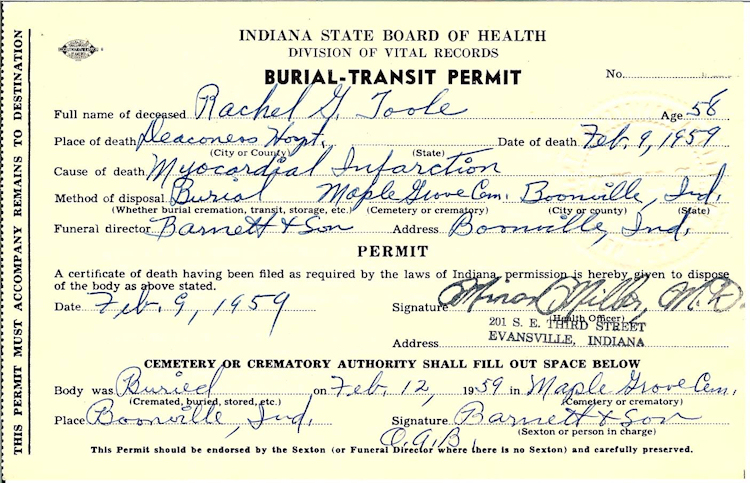 THIS PERMIT MUST ACCOMPANY REMAINS TO DESTINATION
INDIANA STATE BOARD OF HEALTH
DIVISION OF VITAL RECORDS
BURIAL-TRANSIT PERMIT
No.
Full name of deceased Rachel G. Toole Age 58
Place of death Deaconess Hospt. Date of death Feb. 9, 1959
(City or County) (State)
Cause of death Myocardial Infarction
Method of disposal Burial Maple Grove Cem. Boonville, Ind.
(Whether burial cremation, transit, storage, etc.) (Cemetery or crematory) (City or county) (State)
Funeral director Barnett & Son Address Boonville, Ind.
PERMIT
A certificate of death having been filed as required by the laws of Indiana, permission is hereby given to dispose
of the body as above stated.
Date Feb. 9, 1959 Signature Minor Miller, M.D.
(Health Officer)
201 S. E. THIRD STREET
Address EVANSVILLE, INDIANA
CEMETERY OR CREMATORY AUTHORITY SHALL FILL OUT SPACE BELOW
Body was Buried on Feb. 12, 1959 in Maple Grove Cem.
(Cremated, buried, stored, etc.) (Cemetery or crematory)
Place Boonville, Ind. Signature Barnett & Son
(Sexton or person in charge)
O.G.B.
This Permit should be endorsed by the Sexton (or Funeral Director where there is no Sexton) and carefully preserved.